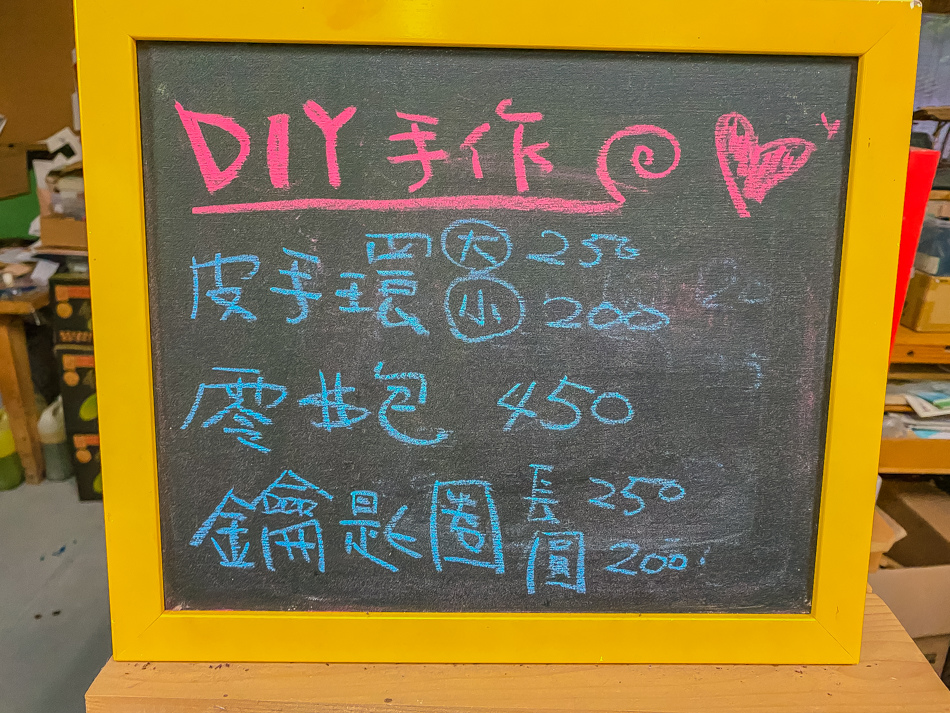 DIY 手作
皮手環 大 250
小 200
零此包 450
鑰匙圈 長 250
圓 200